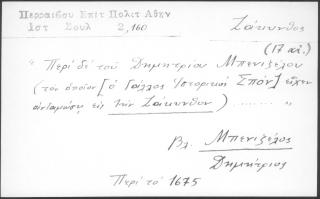 Περραιβου Επιτ Πολιτ Αθεν
Ιστ Σουλ 2,160
Ζάκυνθος
(17 αἰ.)
" Περί δέ τοῦ Δημητρίου Μπενιζέλου
(τον ὁποῖον [ὁ Γάλλος Ἱστορικός Σπόν] εἶχεν
εἰς τήν Ζάκυνθον) ........ "
Βλ. Μπενιζέλος
Δημήτριος
Περί τό 1675